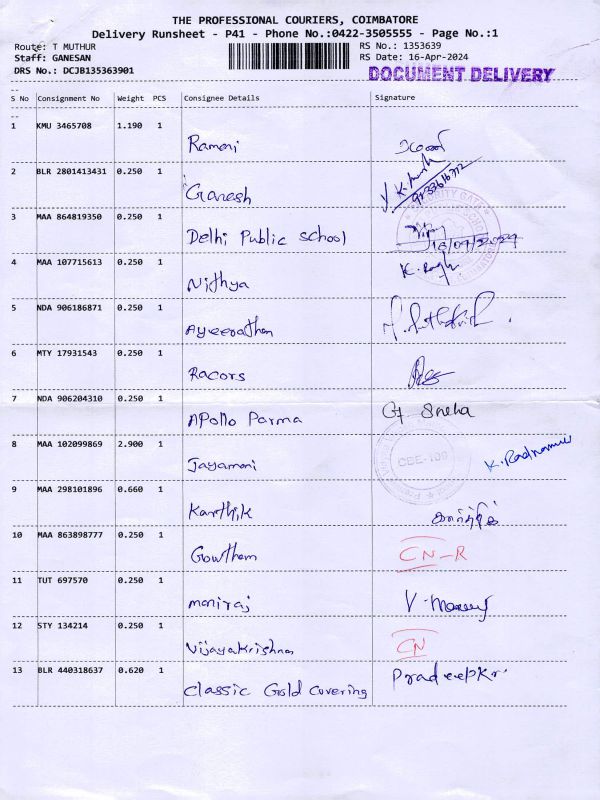 THE PROFESSIONAL COURIERS, COIMBATORE
Delivery Runsheet - P41 - Phone No.:0422-3505555 - Page No.:1
Route: T MUTHUR RS No.: 1353639
Staff: GANESAN RS Date: 16-Apr-2024
DRS No.: DCJB135363901 DOCUMENT DELIVERY
S No Consignment No Weight PCS Consignee Details Signature
1 KMU 3465708 1.190 1
Ramani
2 BLR 2801413431 0.250 1
Ganesh
3 MAA 864819350 0.250 1
Delhi Public school
4 MAA 107715613 0.250 1
Nithya
5 NDA 906186871 0.250 1
6 MTY 17931543 0.250 1
Racors
7 NDA 906204310 0.250 1
Apollo Parma G Sneha
8 MAA 102099869 2.900 1
Jayamani CBE-109
9 MAA 298101896 0.660 1
Karthik கார்த்திக்
10 MAA 863898777 0.250 1
Gowtham CN-R
11 TUT 697570 0.250 1
maniraj
12 STY 134214 0.250 1
Vijayakrishnan CN
13 BLR 440318637 0.620 1 Pradeepkr.
Classic Gold Covering